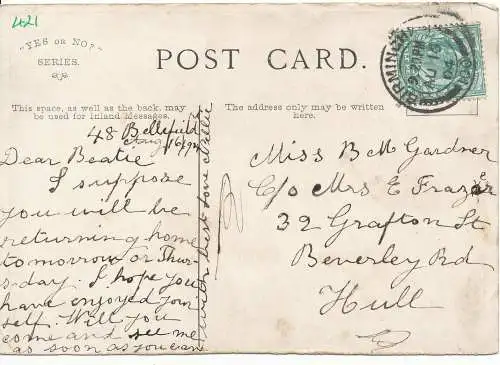 421
"YES or NO?"
SERIES.
POST CARD.
This space, as well as the back, may
be used for Inland Messages.
The address only may be written
here.
48 Bellefield
Aug 16/04
Dear Beatie
I suppose
you will be
returning home
tomorrow or Thur-
sday. I hope you
have enjoyed your
self. Will you
come and see me
as soon as you can
with best love Nellie
BIRMINGHAM
AU 16
04
Miss B M Gardner
C/o Mrs E Frazer
32 Grafton St
Beverley Rd
Hull